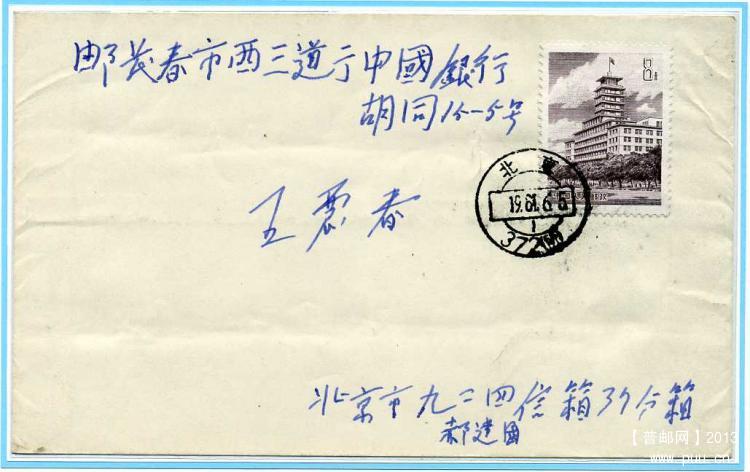 邮长春市西三道亍中國銀行
胡同15-5号
王震春
8分
北京
1981.6.5
1
372(支)
北京市九二四信箱39分箱
郝建国
【普邮网】2013
www.puu.cn